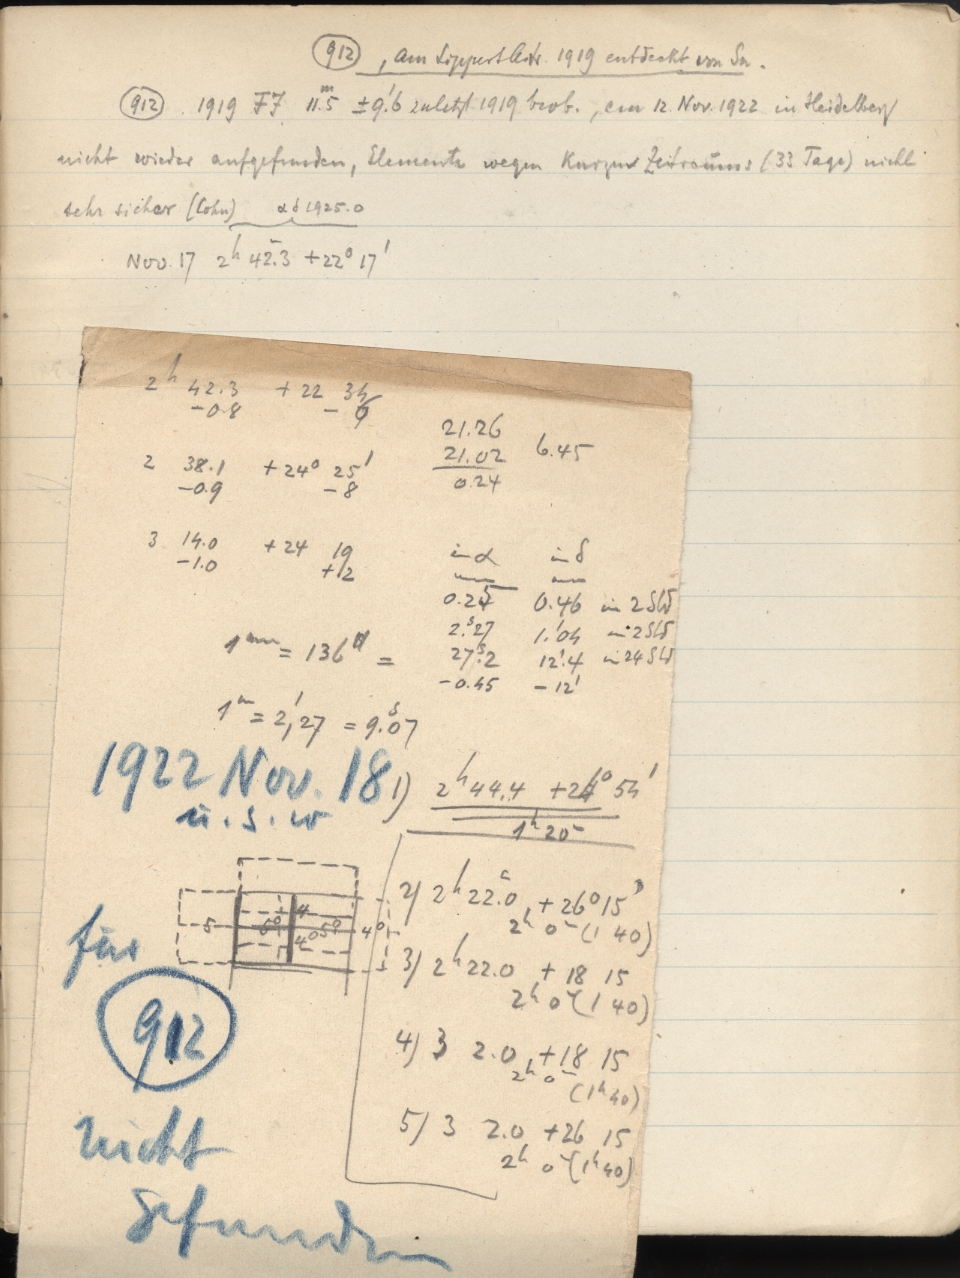 912, am Lippert Astr. 1919 entdeckt von
912 1919 FJ 11.5m ±9'.6 zuletzt 1919 beob., am 12. Nov. 1922 in Heidelberg
nicht wieder aufgefunden, Elemente wegen kurzen Zeitraums (33 Tage) nicht
sehr sicher (Cohn) αδ 1925.0
Nov. 17 2h 42.3 +22° 17'
2h 42.3 +22 34
-0.8 -
21.26
21.02 6.45
0.24
2 38.1 +24° 25'
-0.9 -8
3 14.0 +24 19
-1.0 +2
in α in δ
mm mm
0.25 0.46 in 2 Std
2.s27 1.'04 in 2 Std
27.s2 12.'4 in 24 Std
-0.45 -12'
1mm = 136" =
1m = 2,'27 = 9.s07
1922 Nov. 18
u. s. w
1) 2h 44.4 +24° 54'
1h 20m
2) 2h 22.0 +26° 15'
2h 0m (1 40)
3) 2h 22.0 +18 15
2h 0m (1 40)
4) 3 2.0 +18 15
2h 0m
(1h 40)
5) 3 2.0 +26 15
2h 0m (1h 40)
5 6° 4 4° 5° 4°
für
912
nicht
gefunden